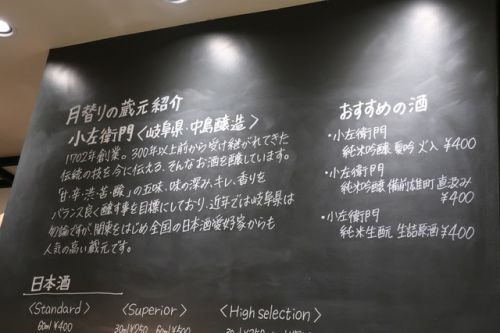 月替りの蔵元紹介
小左衛門<岐阜県・中島醸造>
1702年創業。300年以上前から受け継がれてきた
伝統の技を今に伝える、そんなお酒を醸しています。
「甘・辛・渋・苦・酸」の五味、味の深み、キレ、香りを
バランス良く醸す事を目標にしており、近年では岐阜県は
勿論ですが、関東をはじめ全国の日本酒愛好家からも
人気の高い蔵元です。
おすすめの酒
・小左衛門
純米吟醸 夏吟 火入 ¥400
・小左衛門
純米吟醸 備前雄町 直汲み
¥400
・小左衛門
純米生酛 生詰原酒 ¥400
日本酒
<Standard> <Superior> <High selection>
60ml ¥400 30ml ¥250 60ml ¥500